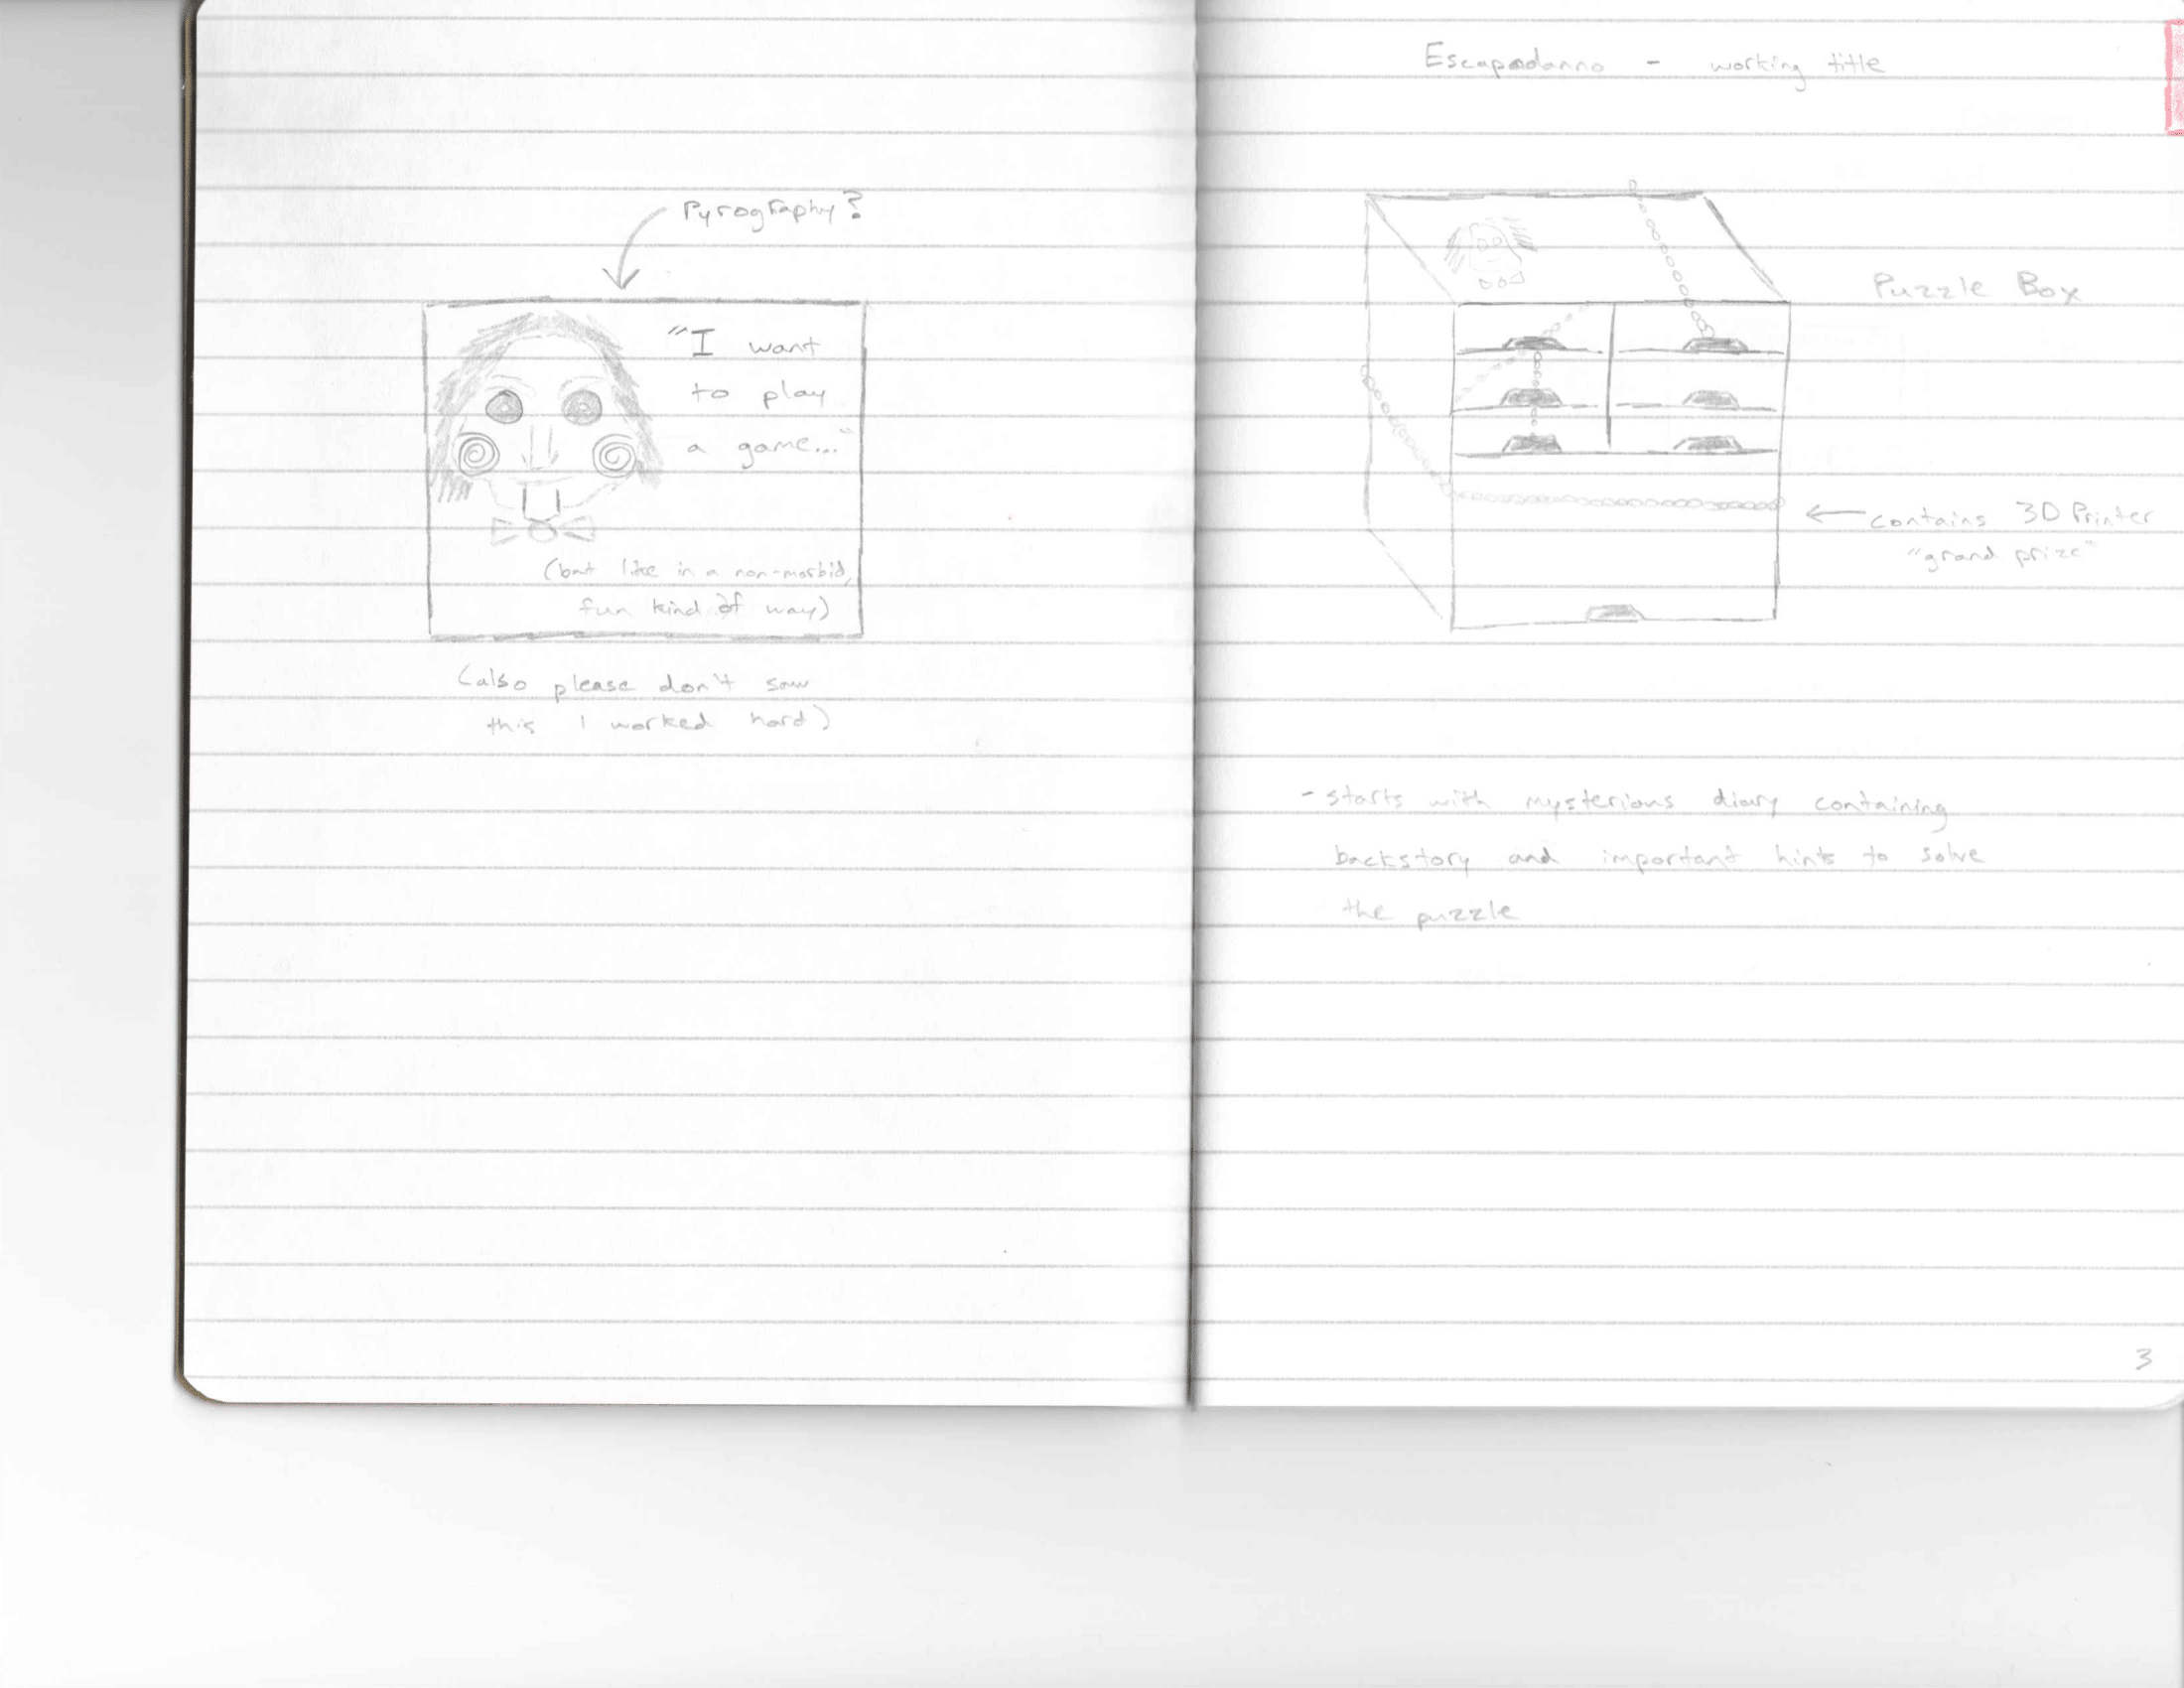 Pyrography?
"I want
to play
a game..."
(but like in a non-morbid,
fun kind of way)
(also please don't saw
this I worked hard)
Escapadanno - working title
Puzzle Box
contains 3D Printer
"grand prize"
- starts with mysterious diary containing
backstory and important hints to solve
the puzzle
3